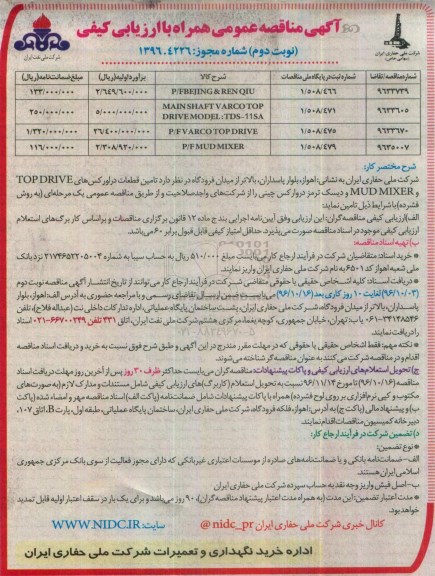 آگهی مناقصه عمومی همراه با ارزیابی کیفی
(نوبت دوم) شماره مجوز: ۱۳۹۶.۴۲۲۶
شرکت ملی حفاری ایران
(سهامی خاص)
شرکت ملی نفت ایران
شماره مناقصه/تقاضا شماره ثبت در پایگاه ملی مناقصات شرح کالا برآورد اولیه (ریال) مبلغ ضمانت نامه (ریال)
۹۶۳۳۷۳۹ ۱/۵۰۸/۴۶۶ P/F BEIJING & REN QIU ۲/۶۴۹/۶۰۰/۰۰۰ ۱۳۳/۰۰۰/۰۰۰
۹۶۳۳۶۰۵ ۱/۵۰۸/۴۷۱ MAIN SHAFT VARCO TOP DRIVE MODEL: TDS-11SA ۵/۰۰۰/۰۰۰/۰۰۰ ۲۵۰/۰۰۰/۰۰۰
۹۶۳۳۶۷۰ ۱/۵۰۸/۴۷۵ P/F VARCO TOP DRIVE ۲۶/۴۰۰/۰۰۰/۰۰۰ ۱/۳۲۰/۰۰۰/۰۰۰
۹۶۳۵۰۰۷ ۱/۵۰۸/۴۷۹ P/F MUD MIXER ۲/۳۰۸/۹۲۰/۰۰۰ ۱۱۶/۰۰۰/۰۰۰
شرح مختصر کار:
شرکت ملی حفاری ایران به نشانی: اهواز، بلوار پاسداران، بالاتر از میدان فرودگاه در نظر دارد تامین قطعات دراورکس های TOP DRIVE
و MUD MIXER و دیسک ترمز دروارکس چینی را از شرکت های واجد صلاحیت و از طریق مناقصه عمومی یک مرحله ای (به روش
فشرده) با شرایط ذیل تامین نماید:
الف) ارزیابی کیفی مناقصه گران: این ارزیابی وفق آیین نامه اجرایی بند ج ماده ۱۲ قانون برگزاری مناقصات و براساس کاربرگ های استعلام
ارزیابی کیفی موجود در اسناد مناقصه صورت می پذیرد. حداقل امتیاز کیفی قابل قبول برابر ۶۰ می باشد.
ب) تهیه اسناد مناقصه:
• خرید اسناد: متقاضیان شرکت در فرآیند ارجاع کار می بایست مبلغ ۵۱۰/۰۰۰ ریال به حساب سیبا به شماره ۲۱۷۴۶۵۲۲۰۵۰۰۳ نزد بانک
ملی شعبه اهواز کد ۶۵۰۱ به نام شرکت ملی حفاری ایران واریز نمایند.
• دریافت اسناد: کلیه اشخاص حقیقی یا حقوقی متقاضی شرکت در فرآیند ارجاع کار می توانند از تاریخ انتشار آگهی مناقصه نوبت دوم
(۹۶/۱۰/۰۳) لغایت ۱۰ روز کاری بعد (۹۶/۱۰/۱۶) می بایست ضمن ارسال تقاضای رسمی و با مراجعه حضوری به آدرس الف: اهواز، بلوار
پاسداران، بالاتر از میدان فرودگاه، شرکت ملی حفاری ایران، پشت ساختمان پایگاه عملیاتی، اداره تدارکات داخلی نت (عبداله فلاح)، تلفن
۰۶۱-۳۴۱۴۸۵۴۶ یا ب: تهران، خیابان جمهوری، کوچه یغما، مرکزی هشتم شرکت ملی نفت ایران، اتاق ۴۳۱ تلفن ۶۶۷۰۰۲۴۹-۰۲۱ اسناد
را دریافت نمایند.
• نکته مهم: فقط اشخاص حقیقی یا حقوقی که در مهلت مقرر مندرج در این آگهی و طبق شرح فوق نسبت به خرید و دریافت اسناد مناقصه
اقدام و در مناقصه شرکت می کنند به عنوان مناقصه گر شناخته می شوند.
ج) تحویل استعلام های ارزیابی کیفی و پاکات پیشنهادات: مناقصه گران می بایست حداکثر ظرف ۳۰ روز پس از آخرین روز مهلت دریافت اسناد
مناقصه (۹۶/۱۰/۱۶) تا مورخ ۹۶/۱۱/۱۴ نسبت به تحویل استعلام (کاربرگ) های ارزیابی کیفی شامل مستندات و مدارک لازم (به صورت های
مکتوب و کپی نرم افزاری بر روی لوح فشرده) همراه با پاکات پیشنهادات شامل ضمانت نامه (پاکت الف) اسناد مناقصه مهر و امضاء شده (پاکت
ب) و پیشنهاد مالی (پاکت ج) به آدرس: اهواز، فلکه فرودگاه، شرکت ملی حفاری ایران، ساختمان پایگاه عملیاتی، طبقه اول، پارت B، اتاق ۱۰۷،
دبیرخانه کمیسیون مناقصات اقدام نمایند.
د) تضمین شرکت در فرآیند ارجاع کار:
• نوع تضمین:
الف- ضمانت نامه بانکی و یا ضمانت نامه های صادره از موسسات اعتباری غیربانکی که دارای مجوز فعالیت از سوی بانک مرکزی جمهوری
اسلامی ایران هستند.
ب- اصل فیش واریز وجه نقد به حساب سپرده شرکت ملی حفاری ایران
• مدت اعتبار تضمین: این مدت (به همراه مدت اعتبار پیشنهاد مناقصه گران)، ۹۰ روز می باشد و برای یک بار در سقف اعتبار اولیه قابل تمدید
خواهد بود.
کانال خبری شرکت ملی حفاری ایران nidc_pr @ سایت: WWW.NIDC.IR
اداره خرید نگهداری و تعمیرات شرکت ملی حفاری ایران